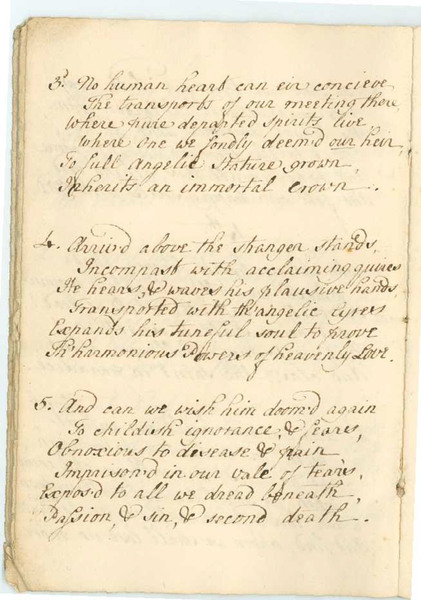 3. No human heart can eir concieve
The transports of our meeting there,
Where pure departed spirits live
Where One we fondly deem'd our heir,
To full Angelic Stature grown,
Inherits an immortal crown.
4. Arriv'd above the stranger stands,
Incompast with acclaiming quires
He hears, & waves his plausive hands
Transported with th'angelic Lyres
Expands his tuneful soul to prove
Th'harmonious Powers of heavenly Love.
5. And can we wish him doom'd again
To childish ignorance, & fears,
Obnoxious to disease & pain
Imprison'd in our vale of tears,
Expos'd to all we dread beneath,
Passion, & sin, & second death.